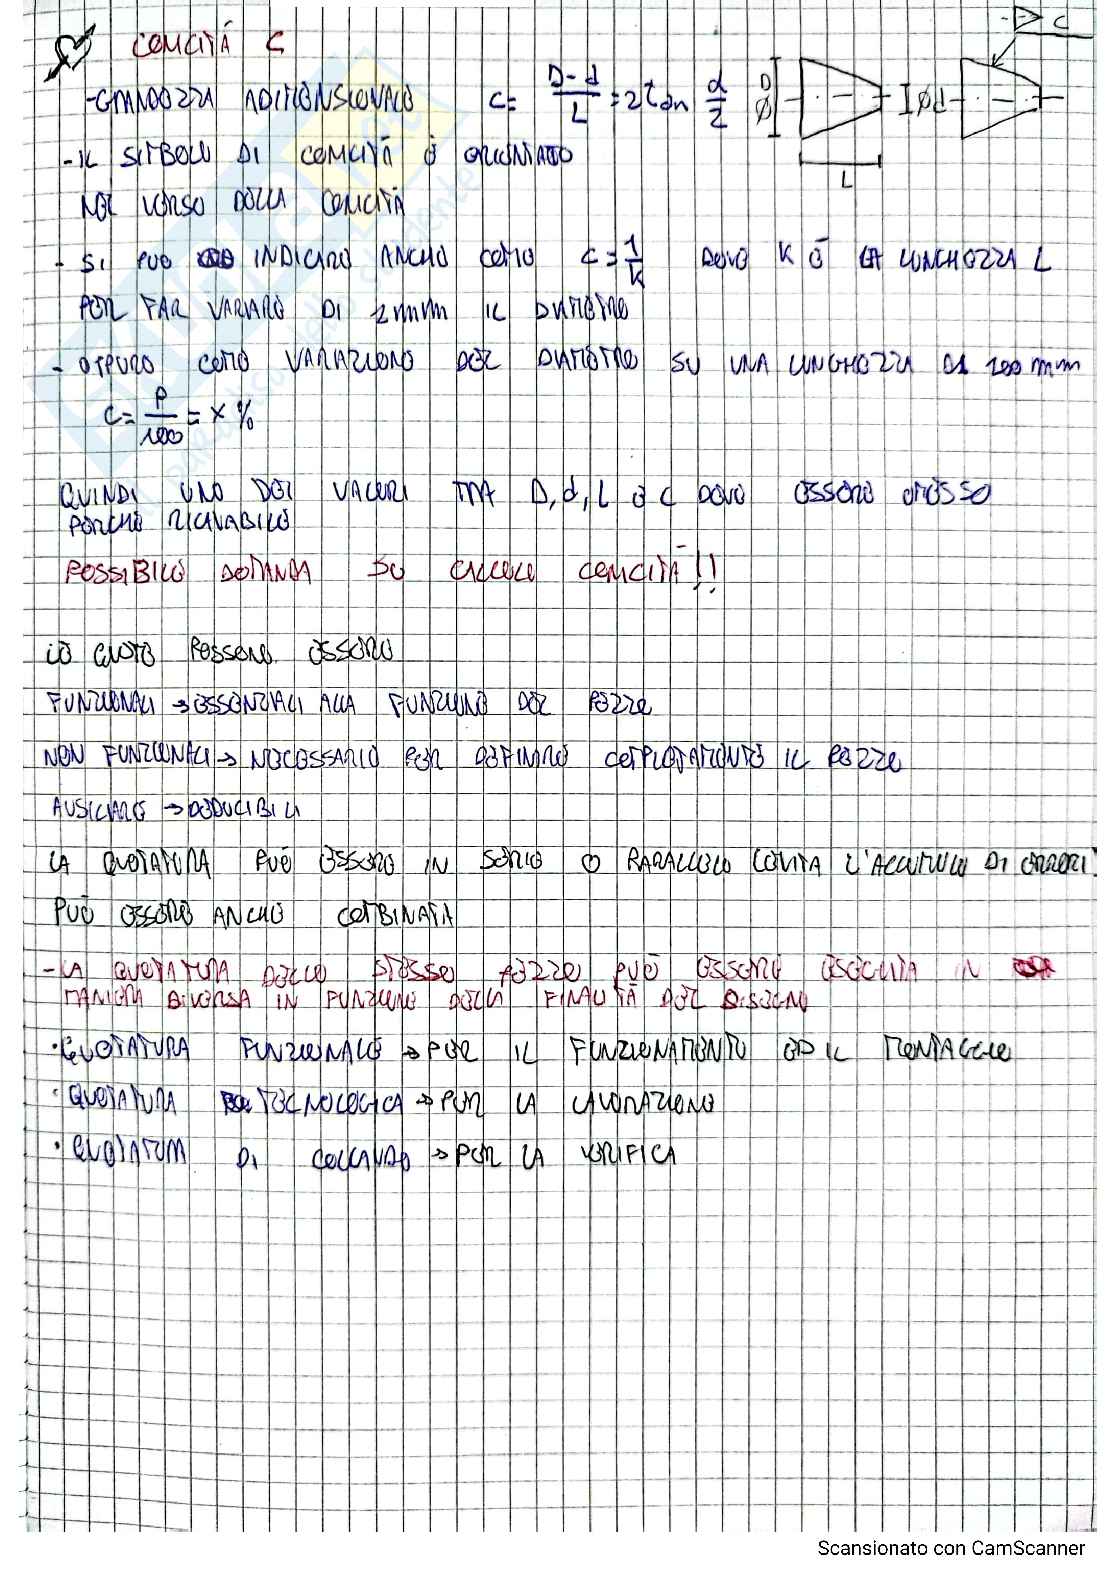 CONICITÀ C
- GRANDEZZA ADIMENSIONALE C = \frac{D-d}{L} = 2 tan \frac{α}{2} Ø D L Ø d C
- IL SIMBOLO DI CONICITÀ È ORIENTATO
NEL VERSO DELLA CONICITÀ
- SI PUÒ INDICARE ANCHE COME C = \frac{1}{K} DOVE K È LA LUNGHEZZA L
PER FAR VARIARE DI 1mm IL DIAMETRO
- OPPURE COME VARIAZIONE DEL DIAMETRO SU UNA LUNGHEZZA DI 100 mm
C = \frac{P}{100} = x %
QUINDI UNO DEI VALORI TRA D, d, L e C DEVE ESSERE OMESSO
PERCHÈ RICAVABILE
POSSIBILE DOMANDA SU CALCOLO CONICITÀ !!
LE QUOTE POSSONO ESSERE
FUNZIONALI → ESSENZIALI ALLA FUNZIONE DEL PEZZO
NON FUNZIONALI → NECESSARIE PER DEFINIRE COMPLETAMENTE IL PEZZO
AUSILIARIE → DEDUCIBILI
LA QUOTATURA PUÒ ESSERE IN SERIE O PARALLELO (EVITA L'ACCUMULO DI ERRORI)
PUÒ ESSERE ANCHE COMBINATA
- LA QUOTATURA DELLO STESSO PEZZO PUÒ ESSERE ESEGUITA IN
MANIERA DIVERSA IN FUNZIONE DELLA FINALITÀ DEL DISEGNO
• QUOTATURA FUNZIONALE → PER IL FUNZIONAMENTO ED IL MONTAGGIO
• QUOTATURA TECNOLOGICA → PER LA LAVORAZIONE
• QUOTATURA DI COLLAUDO → PER LA VERIFICA
Scansionato con CamScanner